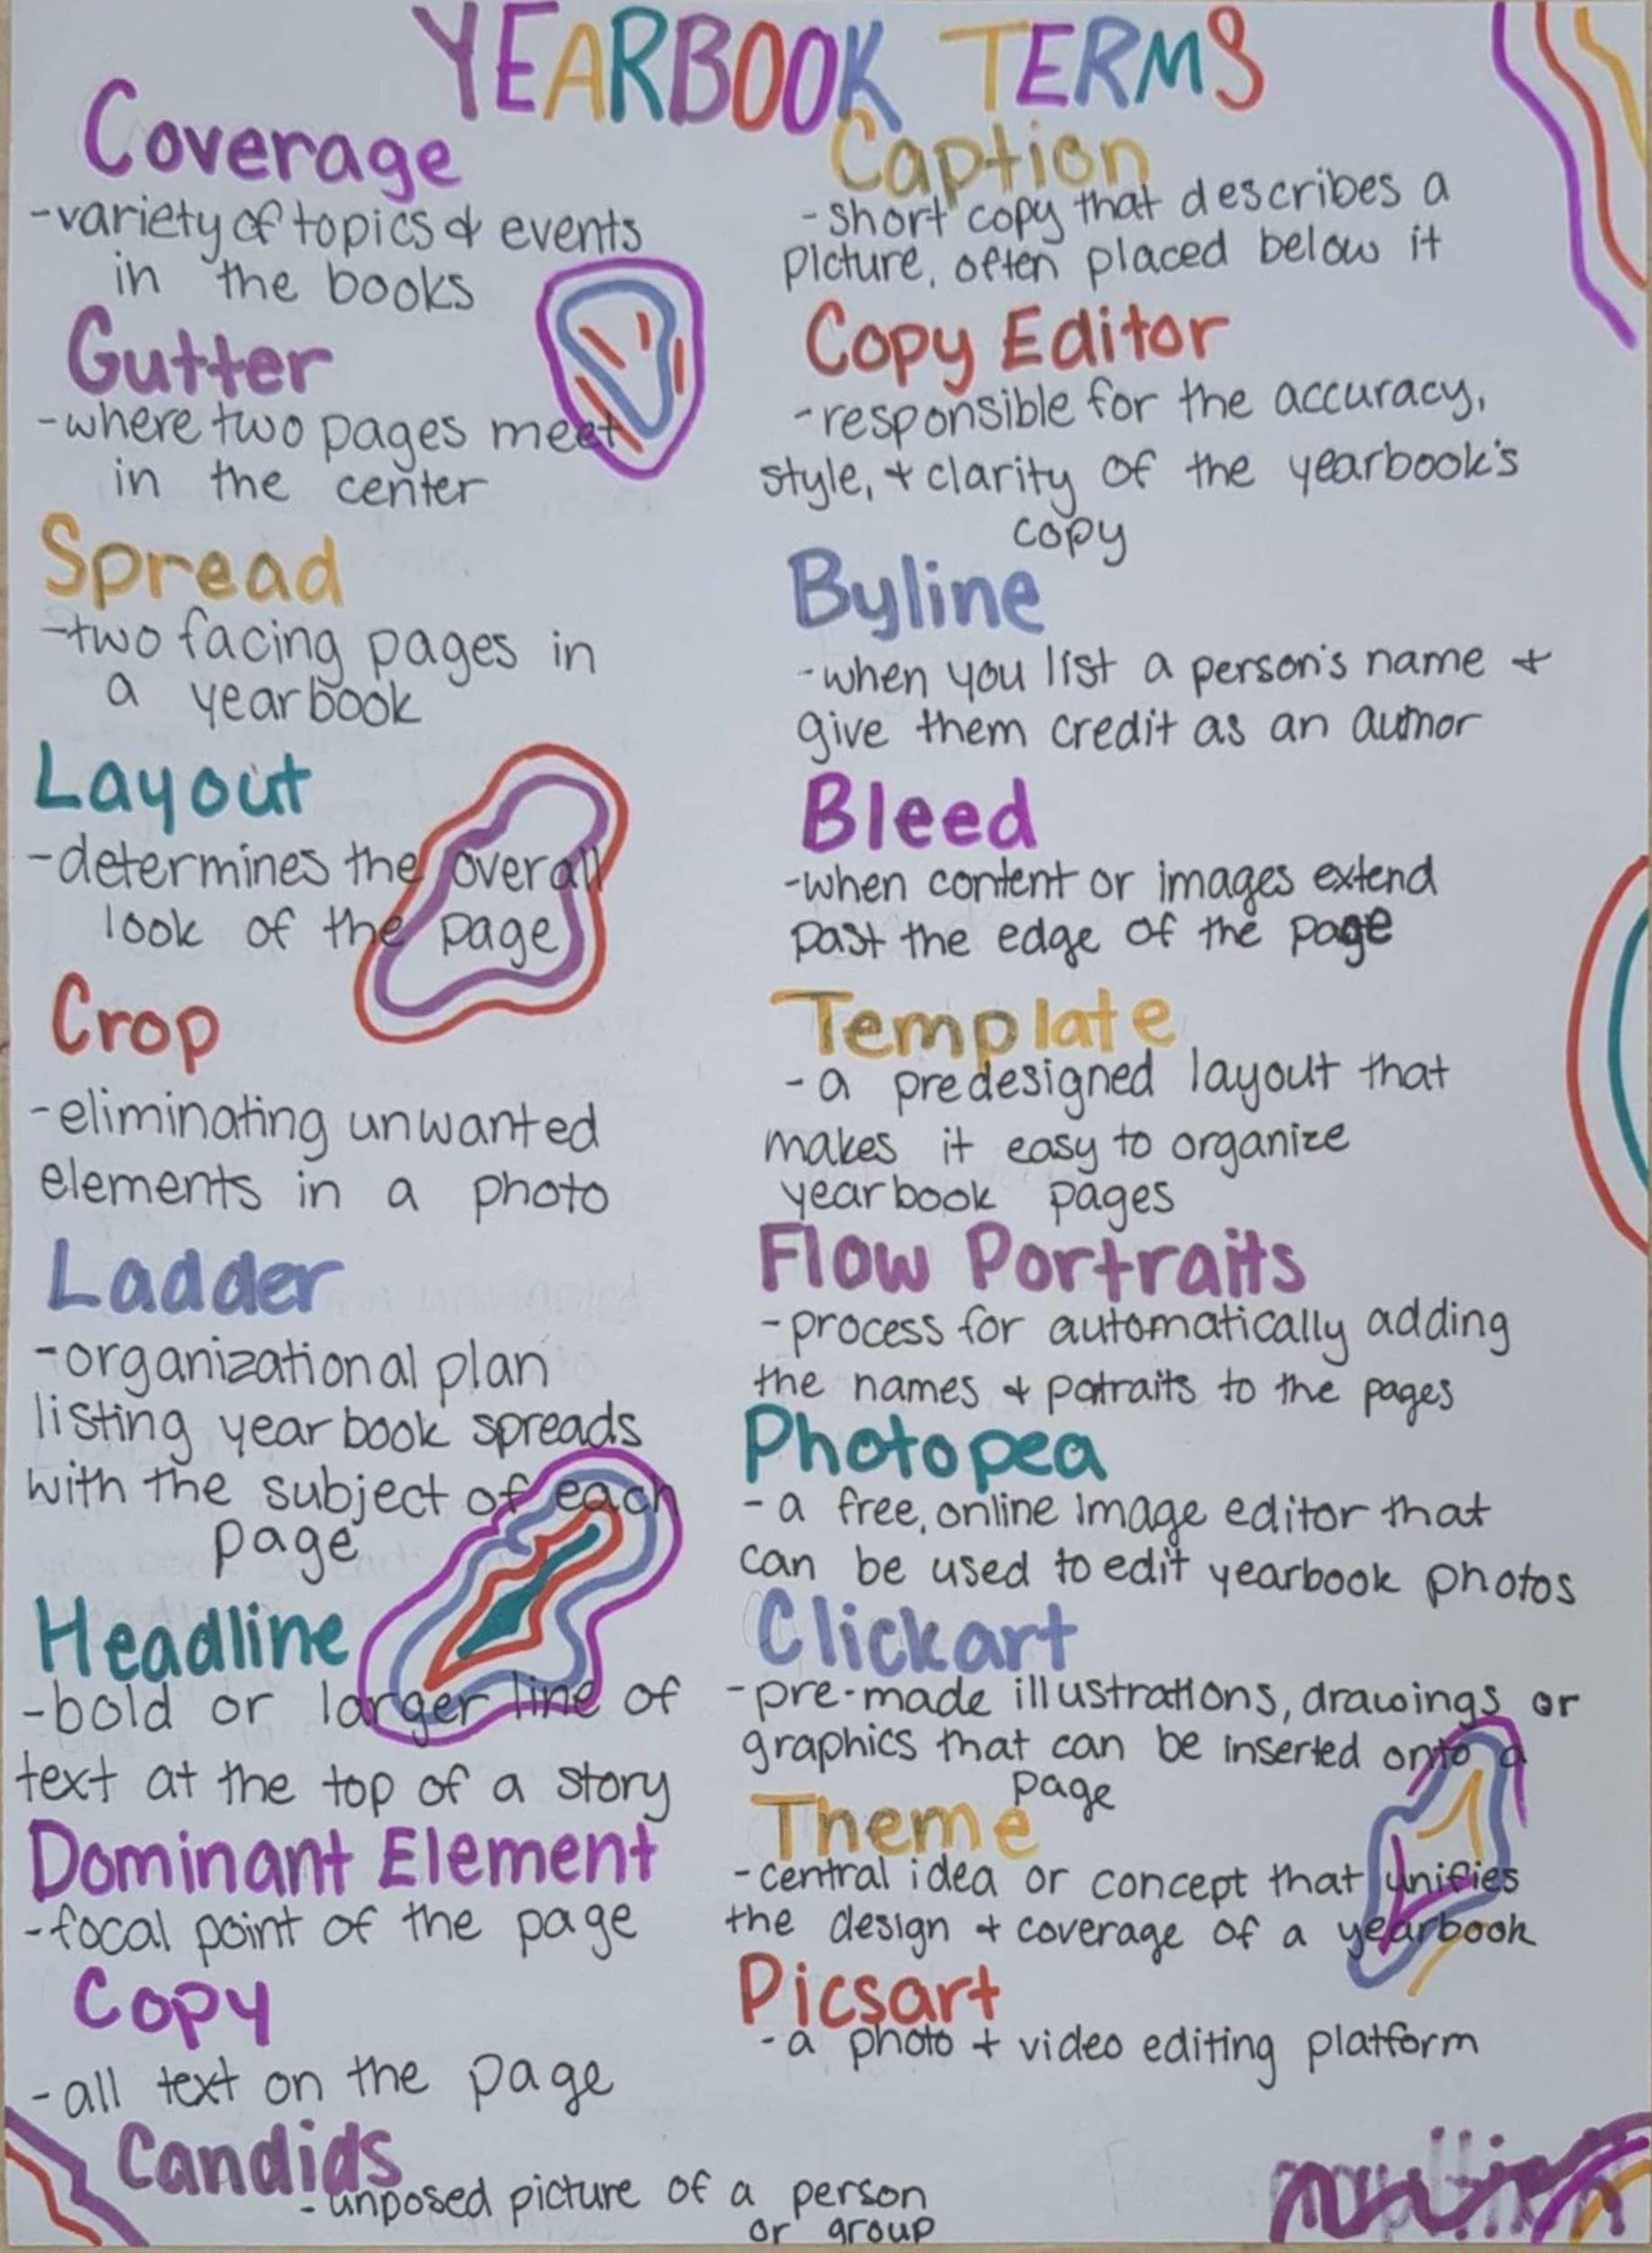 YEARBOOK TERMS
Coverage
-variety of topics & events
in the books
Gutter
-where two pages meet
in the center
Spread
-two facing pages in
a yearbook
Layout
-determines the overall
look of the page
Crop
-eliminating unwanted
elements in a photo
Ladder
-organizational plan
listing yearbook spreads
with the subject of each
page
Headline
-bold or larger line of
text at the top of a story
Dominant Element
-focal point of the page
Copy
-all text on the page
Candids
-unposed picture of a person
or group
Caption
-short copy that describes a
picture, often placed below it
Copy Editor
-responsible for the accuracy,
style, + clarity of the yearbook's
copy
Byline
-when you list a person's name +
give them credit as an author
Bleed
-when content or images extend
past the edge of the page
Template
-a predesigned layout that
makes it easy to organize
yearbook pages
Flow Portraits
-process for automatically adding
the names + potraits to the pages
Photopea
-a free, online image editor that
can be used to edit yearbook photos
Clickart
-pre-made illustrations, drawings or
graphics that can be inserted onto a
page
Theme
-central idea or concept that unifies
the design + coverage of a yearbook
Picsart
-a photo + video editing platform